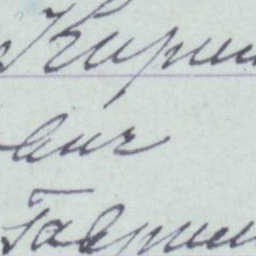 Кирил
вич
Гаврил